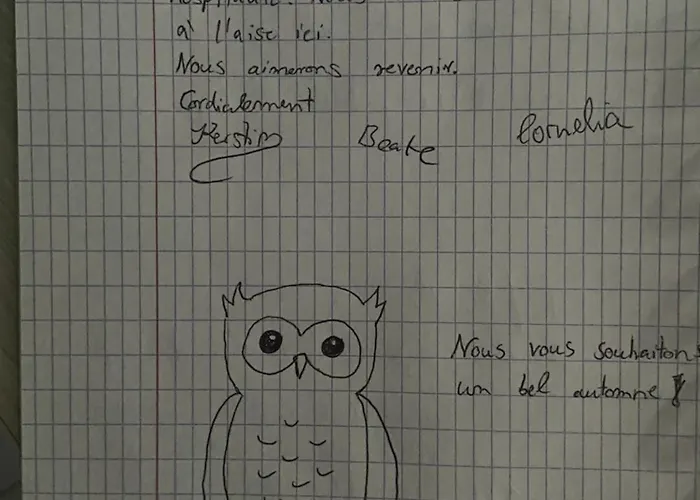 à l'aise ici.
Nous aimerons revenir.
Cordialement
Kerstin Beate Cornelia
Nous vous souhaitons
un bel automne !